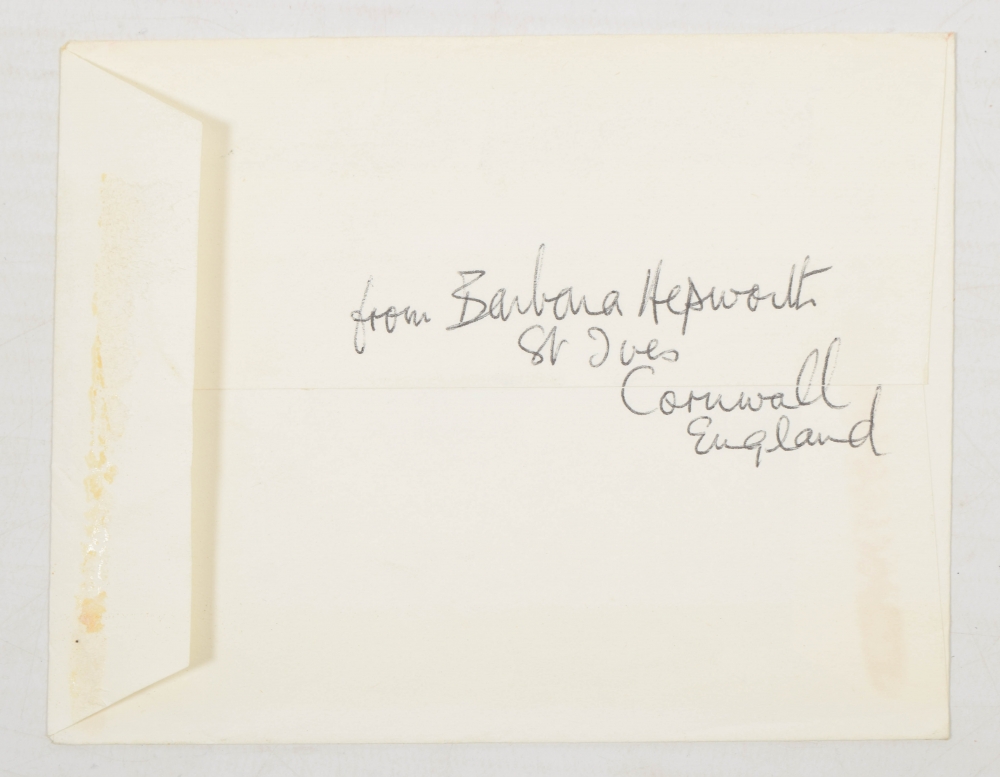 from Barbara Hepworth
St Ives
Cornwall
England